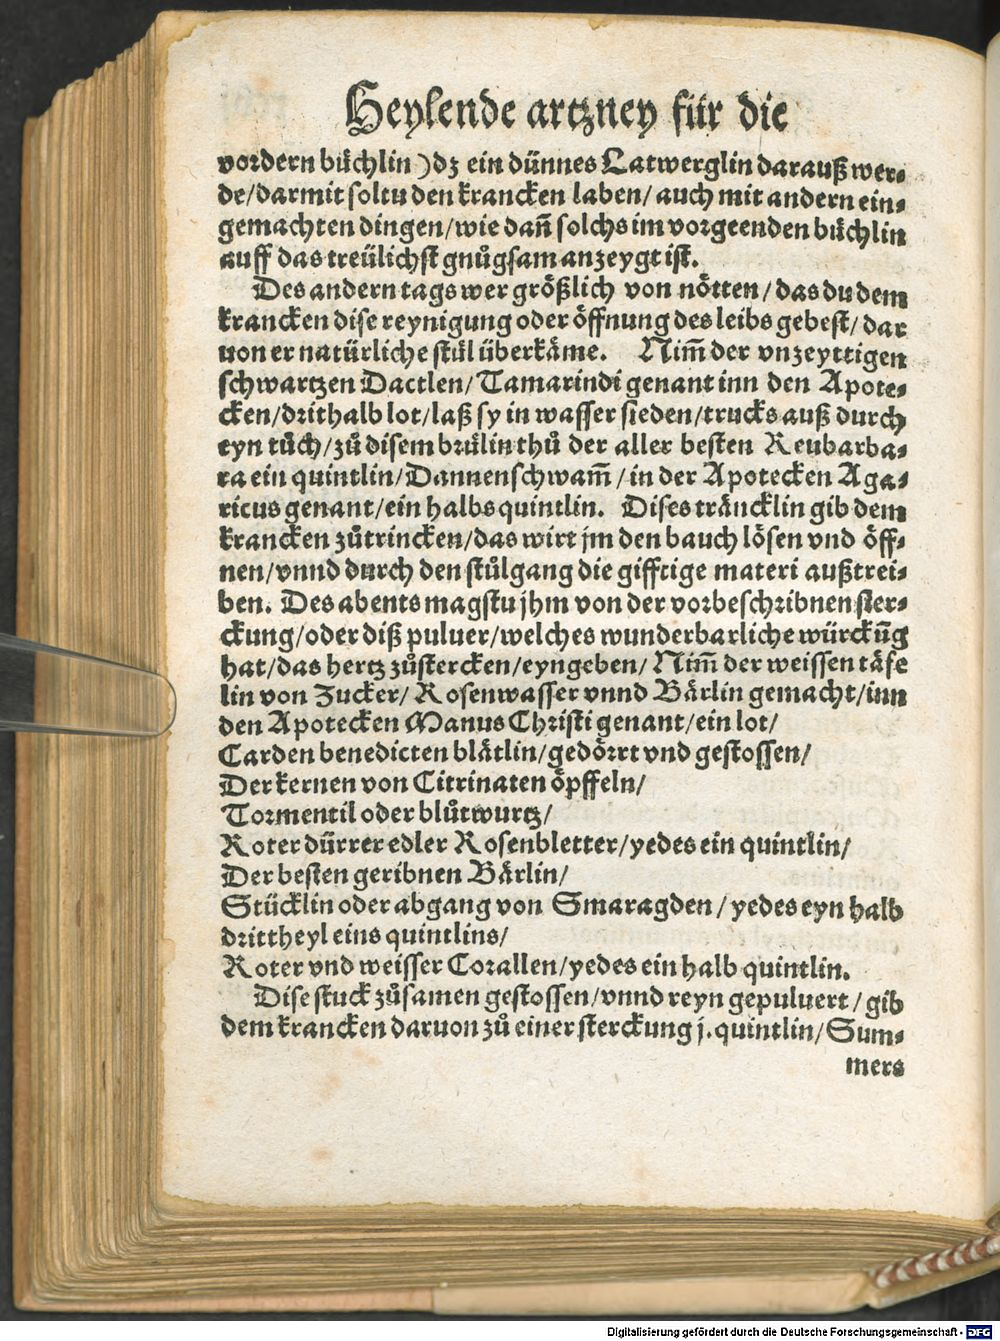 Heylende artzney für die
vordern bůchlin )dz ein dünnes Latwerglin darauß wer⸗
de/darmit soltu den krancken laben/ auch mit andern ein⸗
gemachten dingen/wie dañ solchs im vorgeenden bůchlin
auff das treülichst gnůgsam anzeygt ist.
Des andern tags wer größlich von nötten/das du dem
krancken dise reynigung oder öffnung des leibs gebest/ dar
uon er natürliche stůl überkäme. Nim̃ der vnzeyttigen
schwartzen Dactlen/Tamarindi genant inn den Apote⸗
cken/drithalb lot/laß sy in wasser sieden/trucks auß durch
eyn tůch/zů disem brůlin thů der aller besten Reubarba⸗
ra ein quintlin/Dannenschwam̃/in der Apotecken Aga⸗
ricus genant/ein halbs quintlin. Dises träncklin gib dem
krancken zůtrincken/das wirt jm den bauch lösen vnd öff⸗
nen/vnnd durch den stůlgang die gifftige materi außtrei⸗
ben. Des abents magstu jhm von der vorbeschribnen ster⸗
ckung/oder diß puluer/welches wunderbarliche würckũg
hat/das hertz zůstercken/eyngeben/Nim̃ der weissen täfe
lin von Zucker/Rosenwasser vnnd Bärlin gemacht/inn
den Apotecken Manus Christi genant/ein lot/
Carden benedicten blätlin/gedörrt vnd gestossen/
Der kernen von Citrinaten öpffeln/
Tormentil oder blůtwurtz/
Roter dürrer edler Rosenbletter/yedes ein quintlin/
Der besten geribnen Bärlin/
Stücklin oder abgang von Smaragden/yedes eyn halb
drittheyl eins quintlins/
Roter vnd weisser Corallen/yedes ein halb quintlin.
Dise stuck zůsamen gestossen/vnnd reyn gepuluert/gib
dem krancken daruon zů einer sterckung j. quintlin/Sum⸗
mers
Digitalisierung gefördert durch die Deutsche Forschungsgemeinschaft - DFG